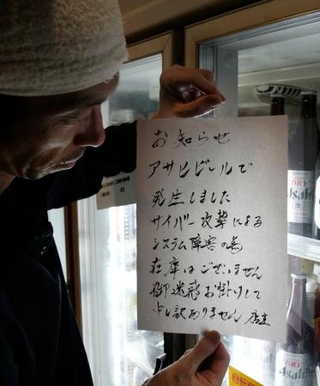 お知らせ
アサヒビールで
発生しました
サイバー攻撃による
システム障害の為
在庫はございません
御迷惑お掛けして
申し訳ありません 店主
DRY
Asahi
DRY
Asahi